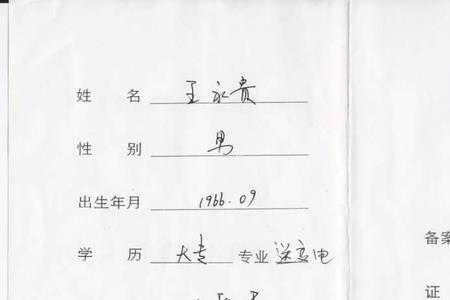 姓 名 王永贵
性 别 男
出生年月 1966.09
学 历 大专 专业 送变电
备案
证